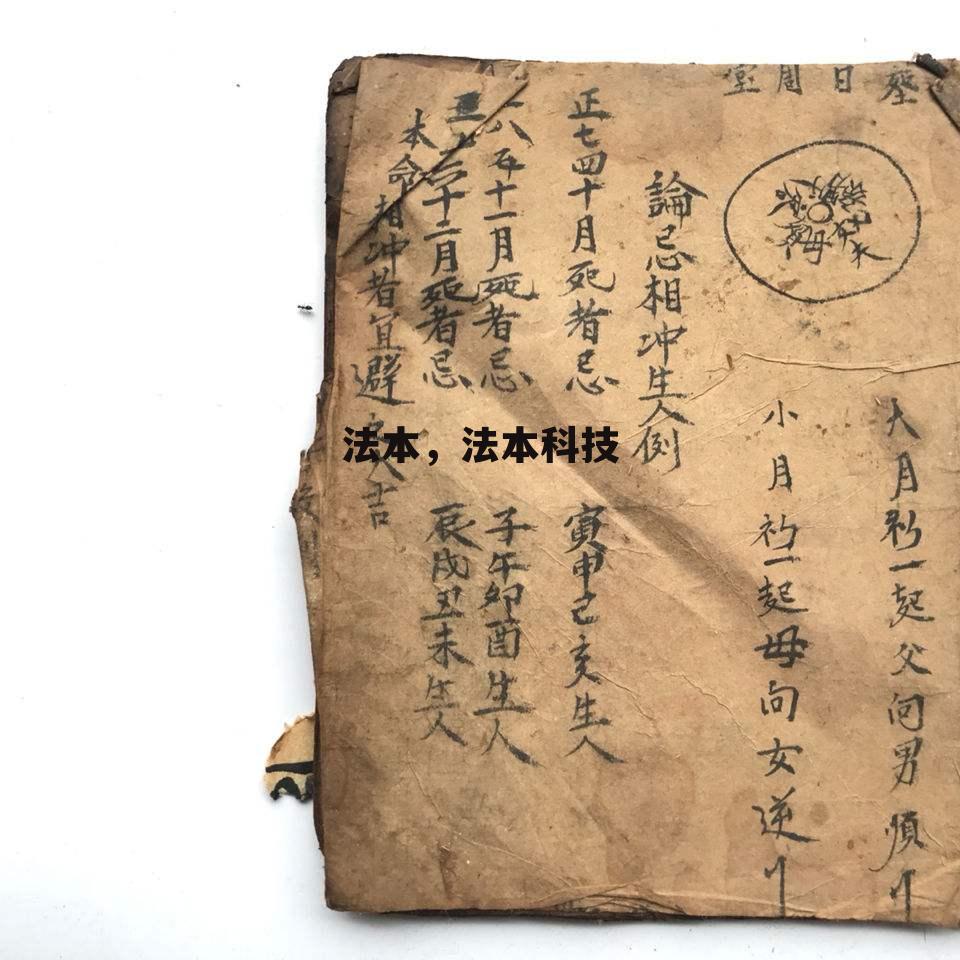 葬日周堂
大月初一起父向男順
小月初一起母向女逆
論忌相冲生人例
正七四十月死者忌 寅申己亥生人
八五十一月死者忌 子午卯酉生人
十二月死者忌 辰戌丑未生人
本命相冲者宜避之大吉
法本，法本科技